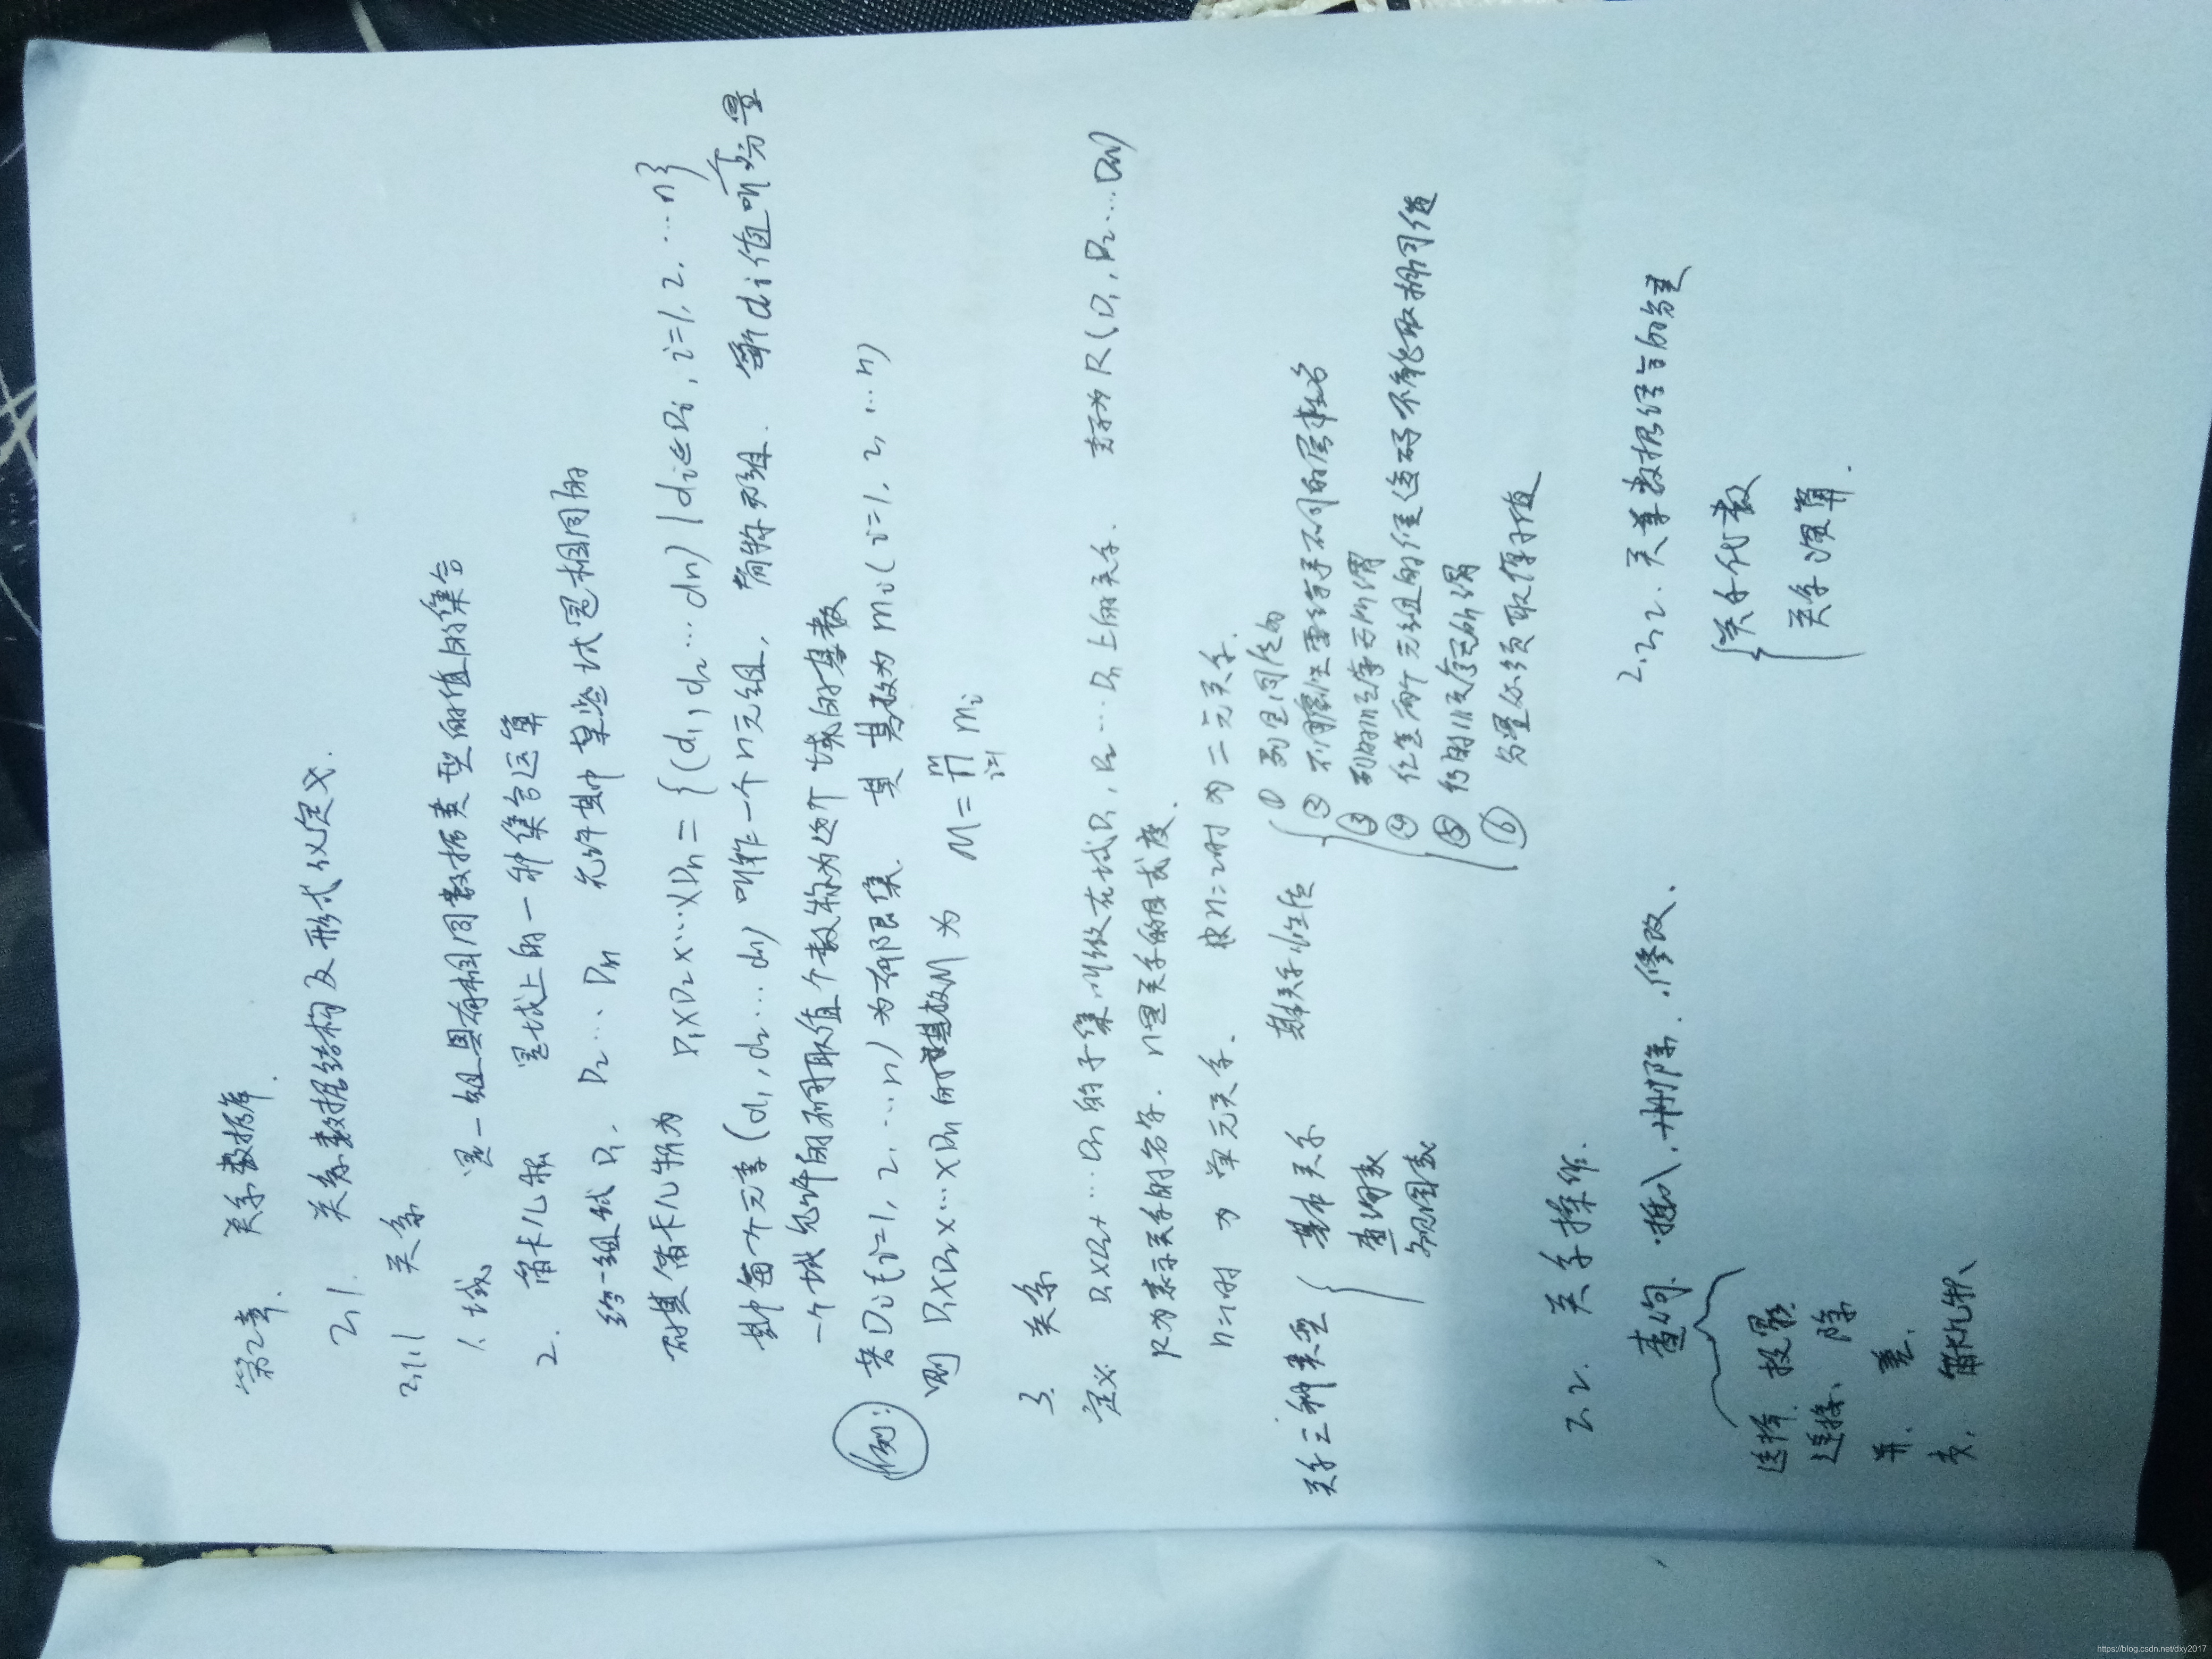 第2章. 关系数据库.
2.1. 关系数据结构及形式化定义.
2.1.1 关系
1. 域 是一组具有相同数据类型的值的集合
2. 笛卡儿积 是域上的一种集合运算
给一组域 D1, D2 … Dn 允许其中某些域是相同的
称其笛卡儿积为 D1×D2×…×Dn = {(d1, d2 … dn) | di∈Di, i=1, 2, … n}
其中每一个元素 (d1, d2 … dn) 叫作一个 n 元组, 简称元组. 每个 di 值叫一个分量
一个域允许的不同取值个数称为这个域的基数
例: 若 Di (i=1, 2, … n) 为有限集. 其基数为 mi (i=1, 2, … n)
则 D1×D2×…×Dn 的基数 M 为 M = ∏ mi
3. 关系
定义: D1×D2×…Dn 的子集叫做在域 D1, D2 … Dn 上的关系. 表示为 R (D1, D2 … Dn)
R 为表示关系的名字. n是关系的目或度.
n=1时 为 单元关系. n=2时 为 二元关系.
关系三种类型 { 基本关系 查询表 视图表
基本关系性质
① 列是同质的
② 不同属性要给予不同的属性名
③ 列的次序无所谓
④ 任意两个元组的候选码不能取相同值
⑤ 行的次序无所谓
⑥ 分量必须取原子值
2.2. 关系操作.
查询. 插入. 删除. 修改.
选择. 投影.
连接、除
并. 差.
交. 笛卡儿积、
2.2.2. 关系数据语言的分类
{ 关系代数
关系演算.
https://blog.csdn.net/dxy2017